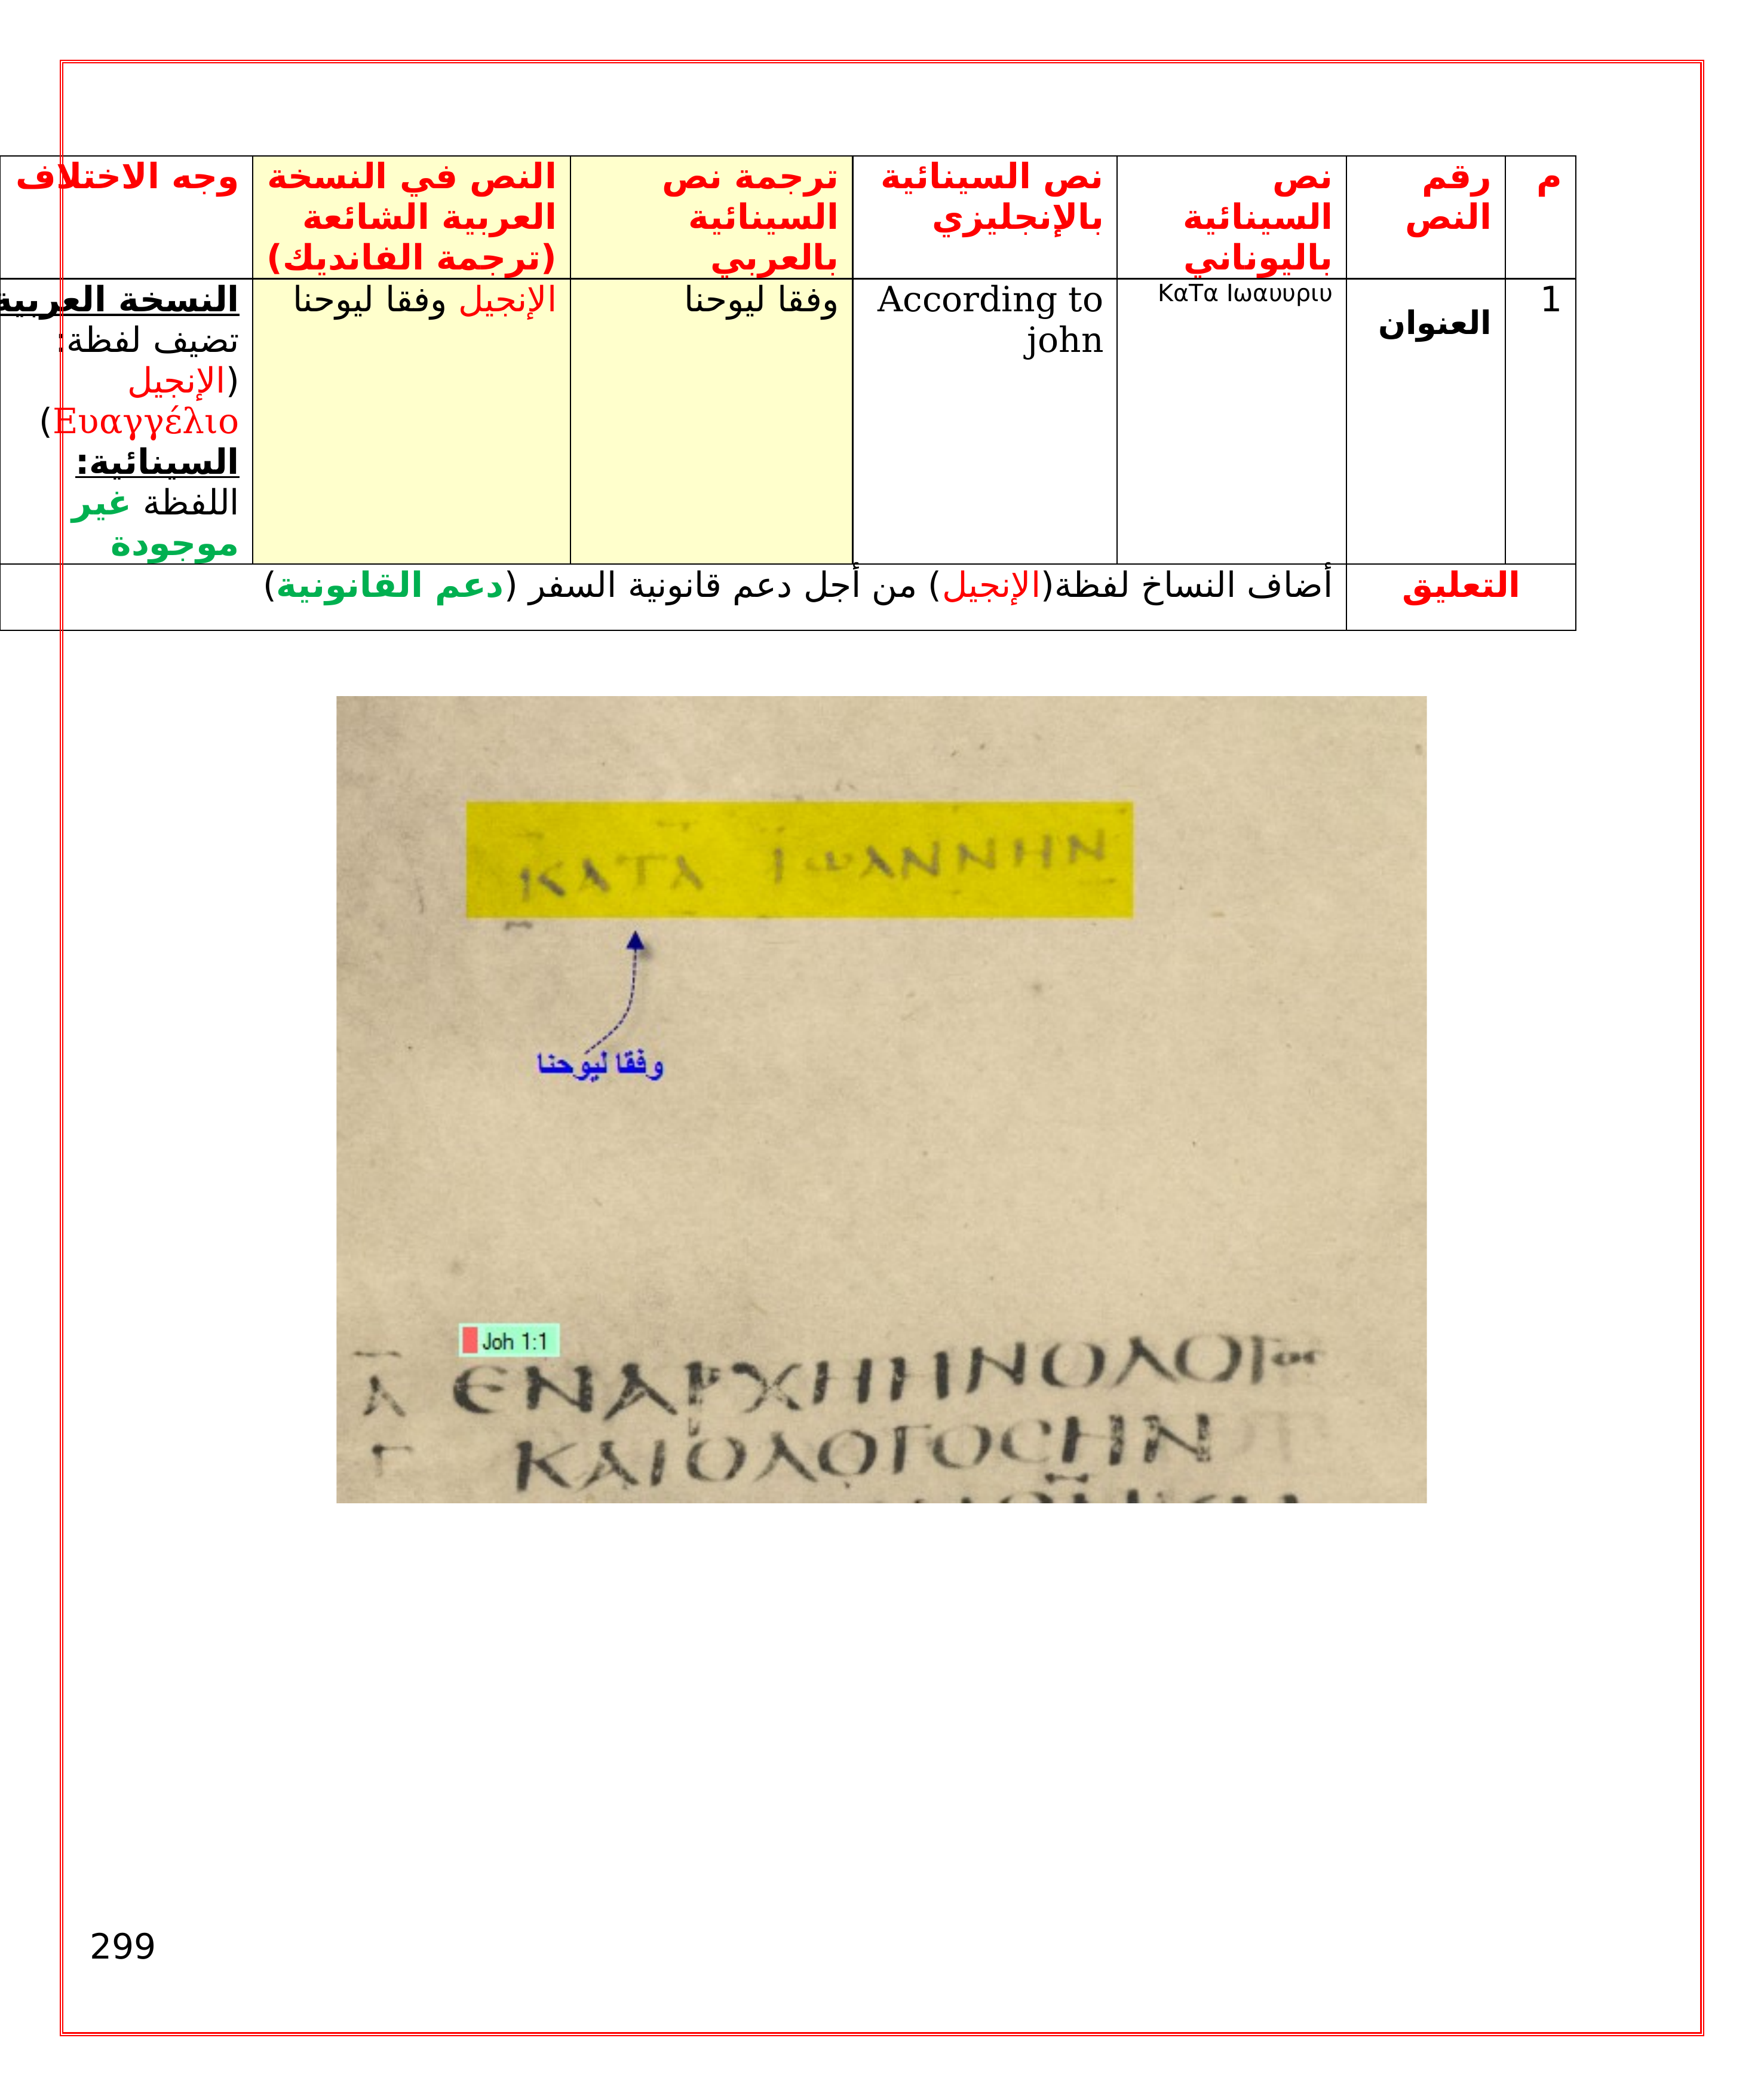 م
رقم
النص
نص
السينائية
باليوناني
نص السينائية
بالإنجليزي
ترجمة نص
السينائية
بالعربي
النص في النسخة
العربية الشائعة
(ترجمة الفانديك)
وجه الاختلاف
1
العنوان
ΚαΤα Ιωαυυριυ
According to
john
وفقا ليوحنا
الإنجيل وفقا ليوحنا
النسخة العربية
تضيف لفظة:
(الإنجيل
Ευαγγέλιο)
السينائية:
اللفظة غير
موجودة
التعليق
أضاف النساخ لفظة(الإنجيل) من أجل دعم قانونية السفر (دعم القانونية)
ΚΑΤΑ ΙΩΑΝΝΗΝ
وفقا ليوحنا
Joh 1:1
Α ΕΝΑΡΧΗΗΝΟΛΟΓΟC
Γ ΚΑΙΟΛΟΓΟCΗΝ
299